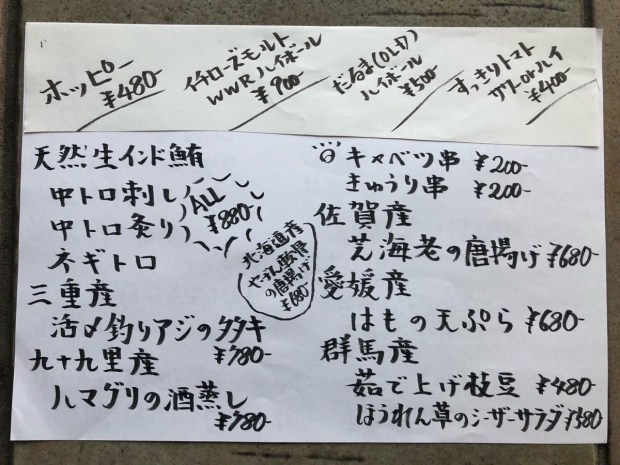 ホッピー
¥480-
イチローズモルト
WWRハイボール
¥900-
だるま(OLD)
ハイボール
¥500-
すっきりトマト
¥400-
天然生インド鮪
中トロ刺し
中トロ炙り
ネギトロ
ALL
¥880-
三重産
活〆釣りアジのタタキ
¥780-
九十九里産
ハマグリの酒蒸し
¥780-
北海道産
やげん軟骨
の唐揚げ
¥680-
キャベツ串 ¥200-
きゅうり串 ¥200-
佐賀産
芝海老の唐揚げ ¥680-
愛媛産
はもの天ぷら ¥680-
群馬産
茹で上げ枝豆 ¥480-
ほうれん草のシーザーサラダ